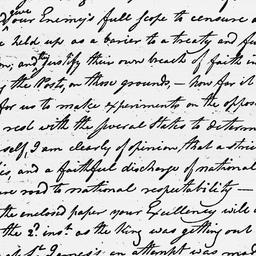 give
your Enemy's full scope to censure a
e held up as a barier to a treaty and fu
on, and to justify their own breach of faith in
g the Posts, on those grounds, — how far it
for us to make experiments on the oppos
rest with the several States to determ
self, I am clearly of opinion, that a stric
s, and a faithful discharge of national
ure road to national respectibility —
the enclosed paper your Excellency will
the 2d. inst. as the King was getting out
at St. James's an attempt was mad